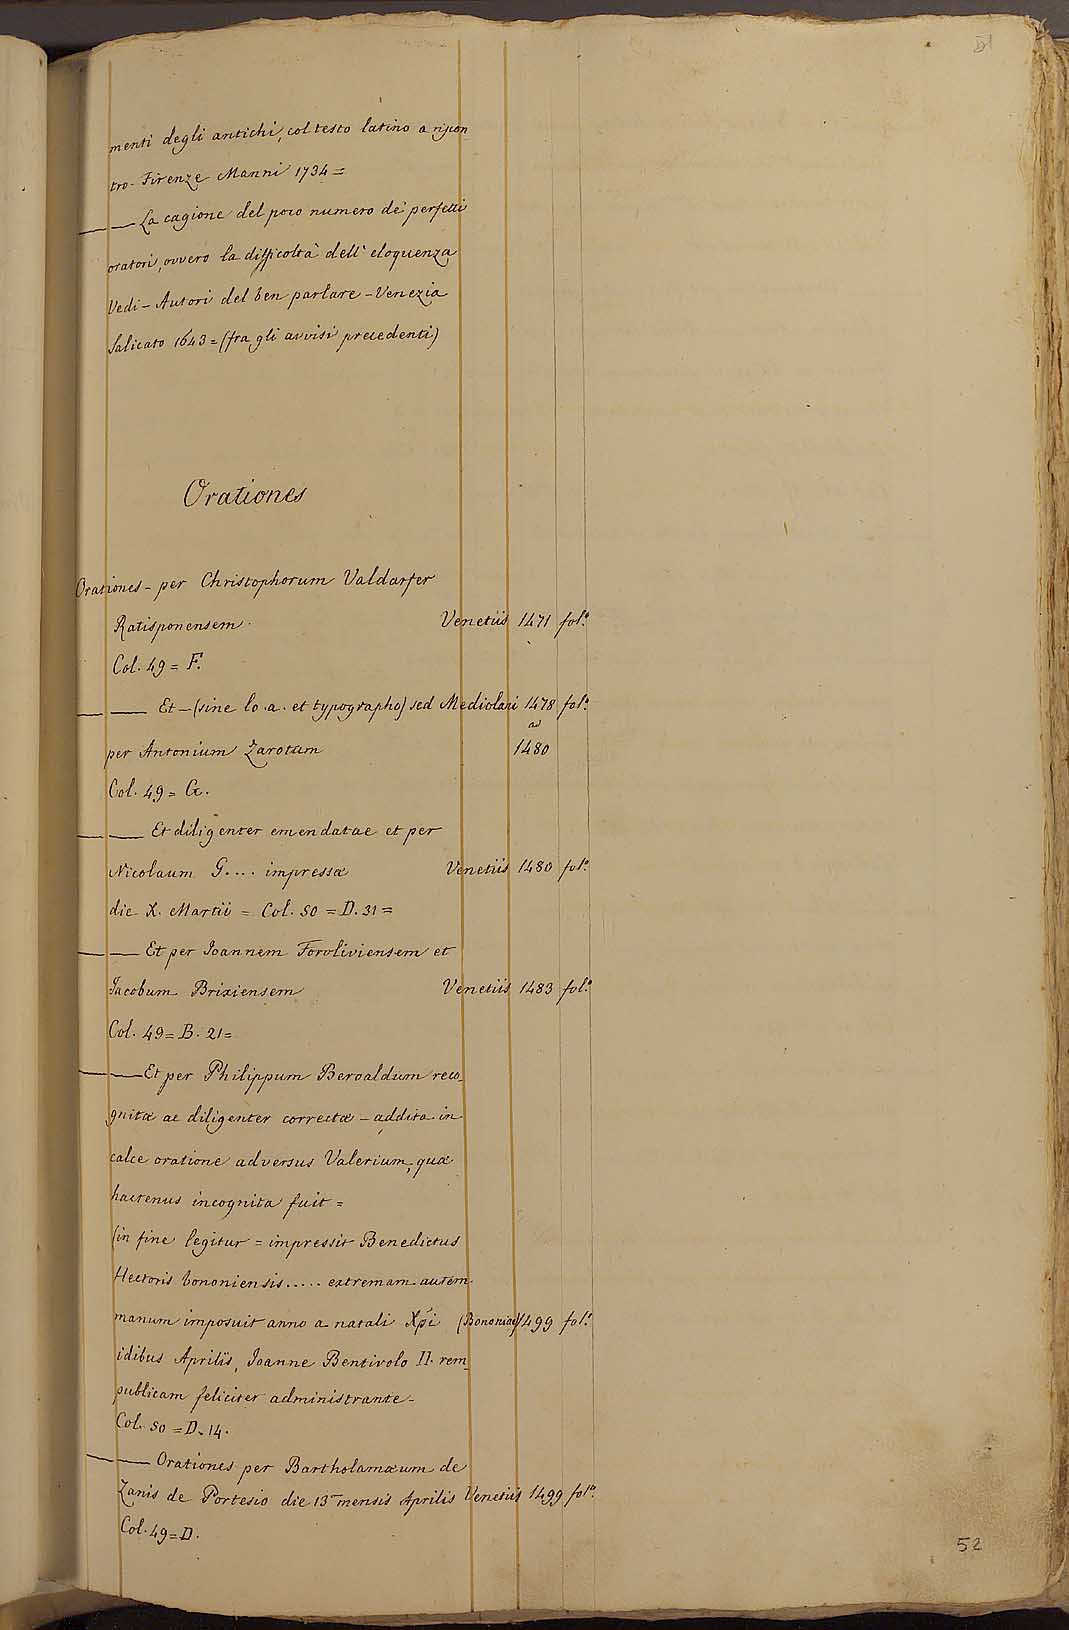 menti degli antichi, col testo latino a riscon
tro - Firenze Manni 1734 =
—— La cagione del poco numero de' perfetti
oratori, ovvero la difficoltà dell' eloquenza
Vedi - Autori del ben parlare - Venezia
Salicato 1643 = (fra gli avvisi precedenti)
Orationes
Orationes - per Christophorum Valdarfer
Ratisponensem. Venetiis 1471 fol.º
Col. 49 = F.
—— Et - (sine lo. a. et typographo) sed Mediolani 1478 fol.º
ad
per Antonium Zarotum 1480
Col. 49 = G.
—— Et diligenter emendatae et per
Nicolaum G.... impressæ Venetiis 1480 fol.º
die X. Martii = Col. 50 = D. 31 =
—— Et per Joannem Foroliviensem et
Jacobum Brixiensem Venetiis 1483 fol.º
Col. 49 = B. 21 =
—— Et per Philippum Beroaldum reco_
gnitæ ac diligenter correctæ - addita in
calce oratione adversus Valerium, quæ
hactenus incognita fuit =
(in fine legitur = impressit Benedictus
Hectoris bononiensis ..... extremam autem
manum imposuit anno a natali Xpi (Bononiae) 1499 fol.º
idibus Aprilis, Joanne Bentivolo II. rem_
publicam feliciter administrante -
Col. 50 = D. 14.
—— Orationes per Bartholamæum de
Zanis de Portesio die 13 mensis Aprilis Venetiis 1499 fol.º
Col. 49 = D.
52